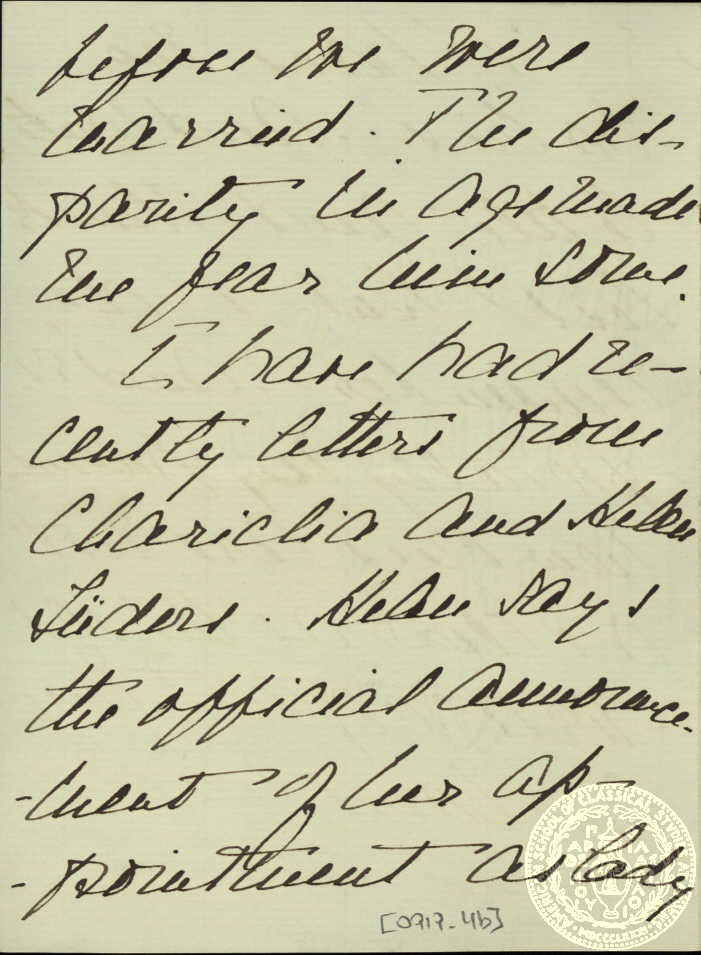 before we were
married. The dis-
parity in age made
me fear him some.
I have had re-
cently letters from
Chariclia and Helen
Lüders. Helen says
the official announce-
-ment of her ap-
-pointment as lady
[0717-4b]